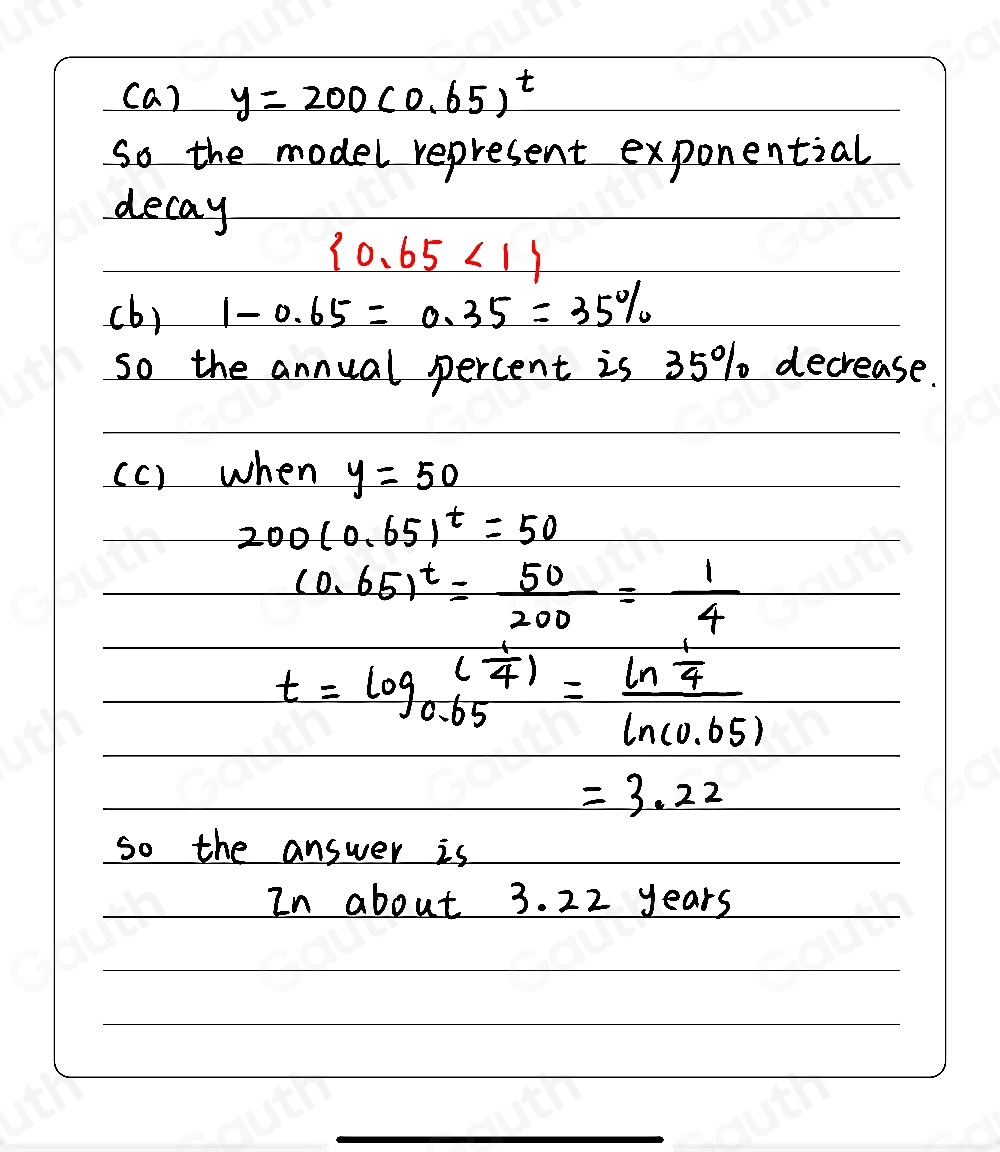 (a) y = 200(0.65)^t
So the model represent exponential
decay
{0.65 < 1}
(b) 1 - 0.65 = 0.35 = 35%
So the annual percent is 35% decrease.
(c) when y = 50
200(0.65)^t = 50
(0.65)^t = 50/200 = 1/4
t = log_0.65 (1/4) = ln 1/4 / ln(0.65)
= 3.22
So the answer is
In about 3.22 years
Gauth